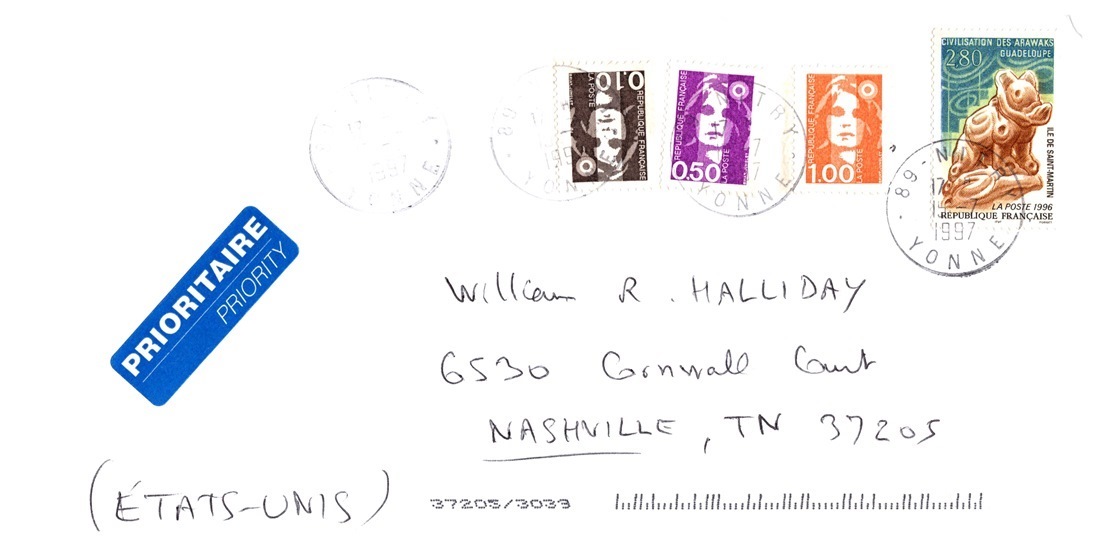 0.10
LA POSTE
RÉPUBLIQUE FRANÇAISE
RÉPUBLIQUE FRANÇAISE
0.50
LA POSTE
RÉPUBLIQUE FRANÇAISE
1.00
LA POSTE
CIVILISATION DES ARAWAKS
GUADELOUPE
2,80
ILE DE SAINT-MARTIN
LA POSTE 1996
RÉPUBLIQUE FRANÇAISE
1997
YONNE
89
1997
YONNE
YONNE
89-
17
1997
YONNE
PRIORITAIRE
PRIORITY
William R. HALLIDAY
6530 Cornwall Court
NASHVILLE, TN 37205
(ÉTATS-UNIS)
37205/3039